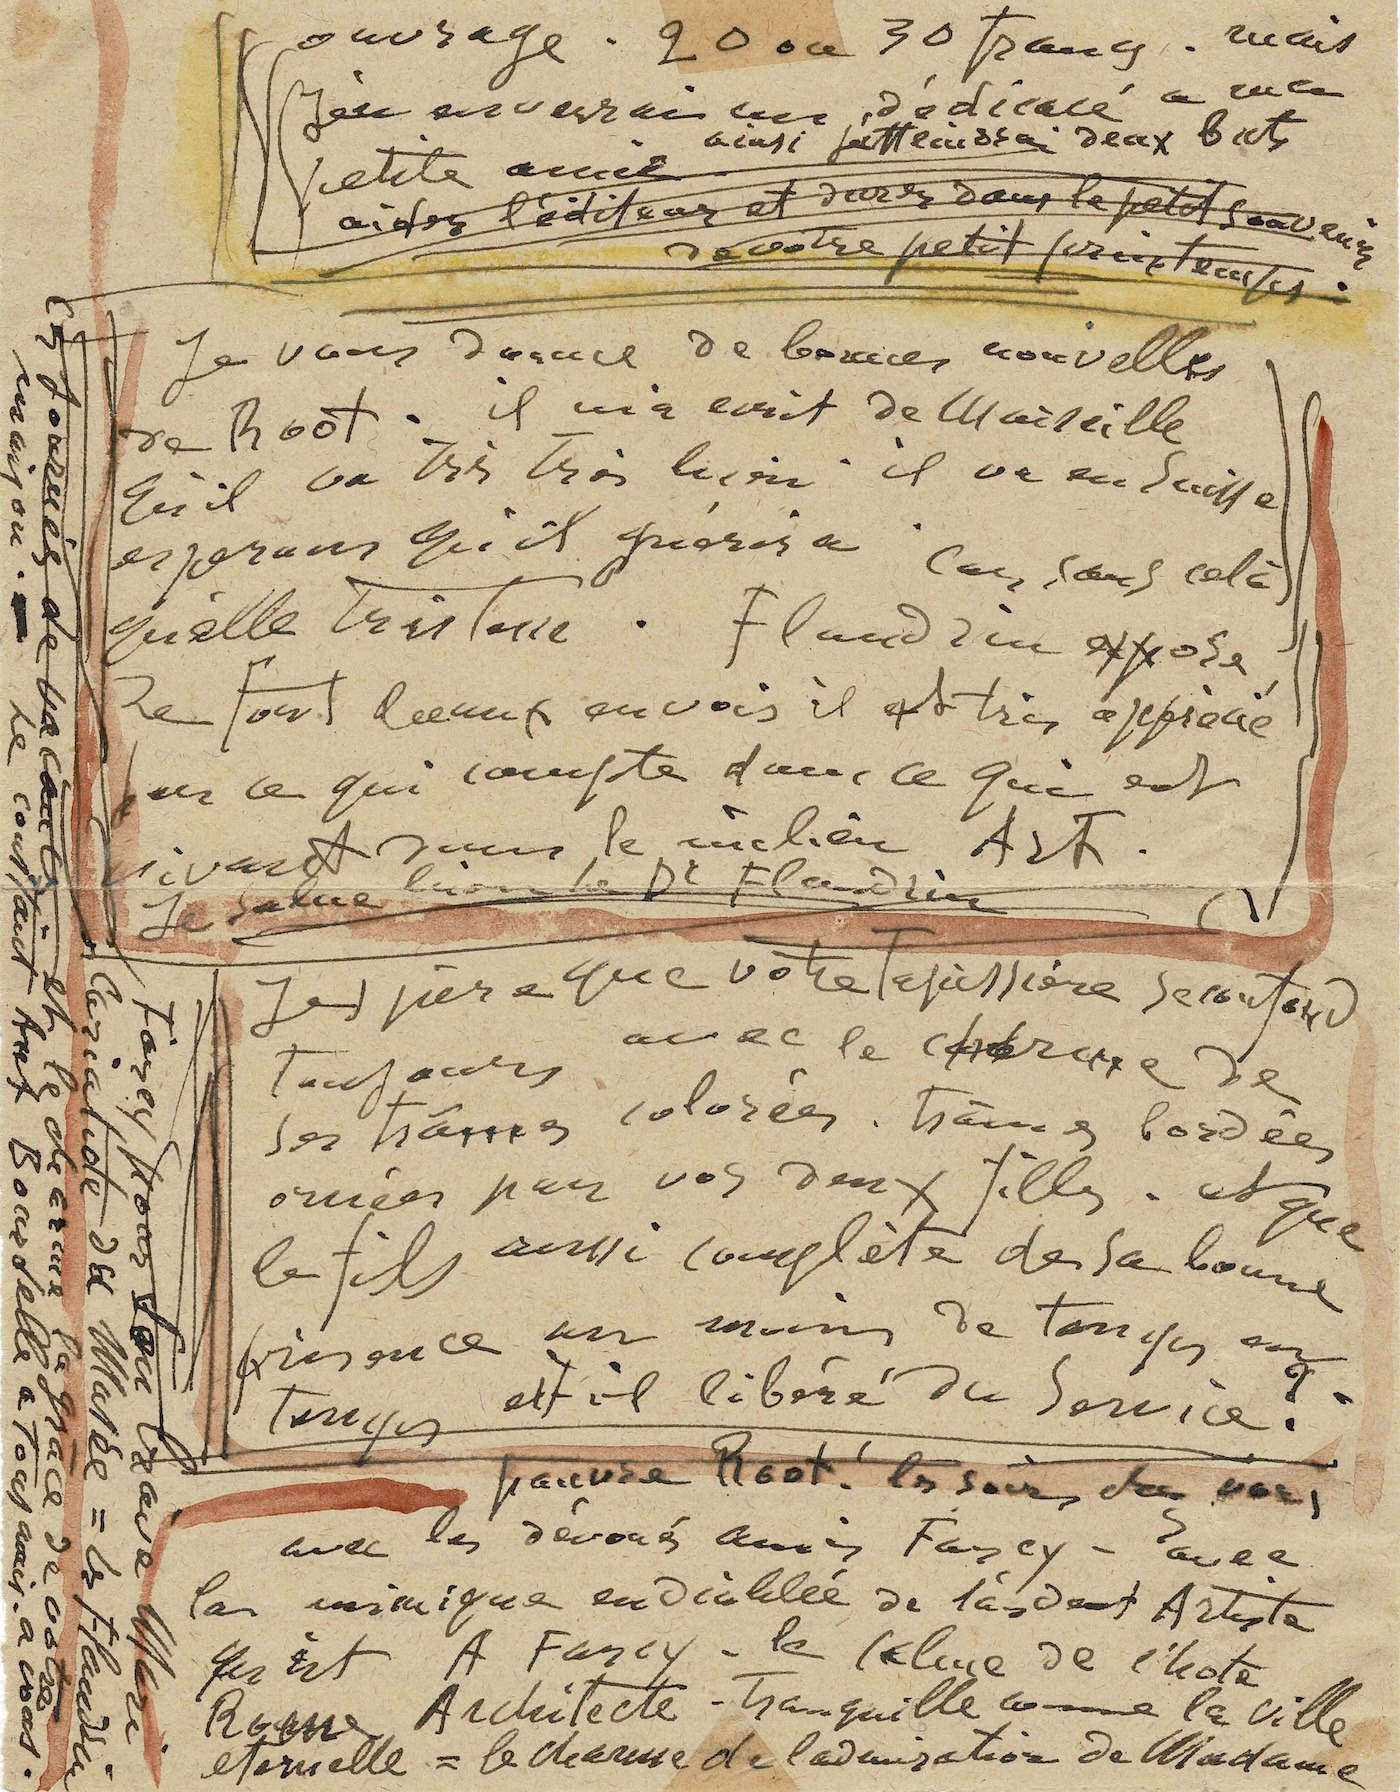 ouvrage. 20 ou 30 francs. mais
J'en enverrai un dédicacé a ma
petite amie ainsi j'atteindrai deux buts
aider l'éditeur et durer dans le petit souvenir
de votre petit printemps.
Je vous donne de bonnes nouvelles
de Root. il m'a ecrit de Marseille
qu'il va très très bien. il va en Suisse
esperons qu'il guérira. Car sans celà
quelle tristesse. Flandrin expose
de fort beaux envois il est très apprécié
sur ce qui compte dans ce qui est
vivant dans le milieu Art.
Je salue bien le Dr Flandrin
J'espère que votre Tapissière se confond
toujours avec le charme de
ses trâmes colorées. trâmes bordées
ornées par vos deux filles. et que
le fils aussi complète de sa bonne
présence un moins de temps en
temps est-il libéré du Service?
pauvre Root! les soirs chez vous
avec les dévoués amis Farcy - avec
la mimique endiablée de l'ardent Artiste
qu'est A Farcy - le calme de l'hote
Rome Architecte - tranquille comme la ville
eternelle = le charme de l'admiration de Madame
Farcy pour son brave Mari
Cariatide du Musée = les Flandrin
et le charme la grâce de votre
maison. Le constant Ant Bourdelle a tous amis. a vous.